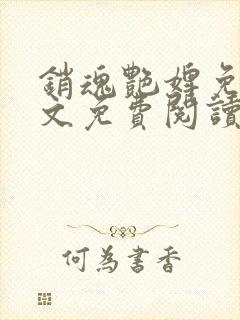 銷魂艷婢免
文免費閱讀
何為書香